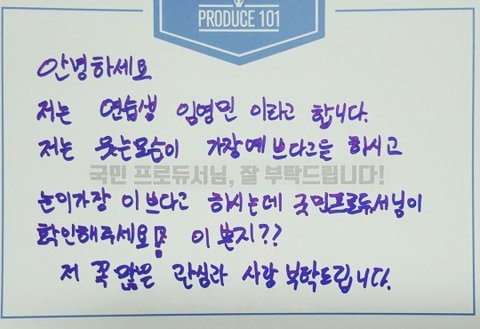 PRODUCE 101
안녕하세요
저는 연습생 임영민 이라고 합니다.
저는 웃는모습이 가장예쁘다고들 하시고
국민 프로듀서님, 잘 부탁드립니다!
눈이가장 이쁘다고 하시는데 국민프로듀서님이
확인해주세요 이쁜지??
저 꼭 많은 관심과 사랑 부탁드립니다.